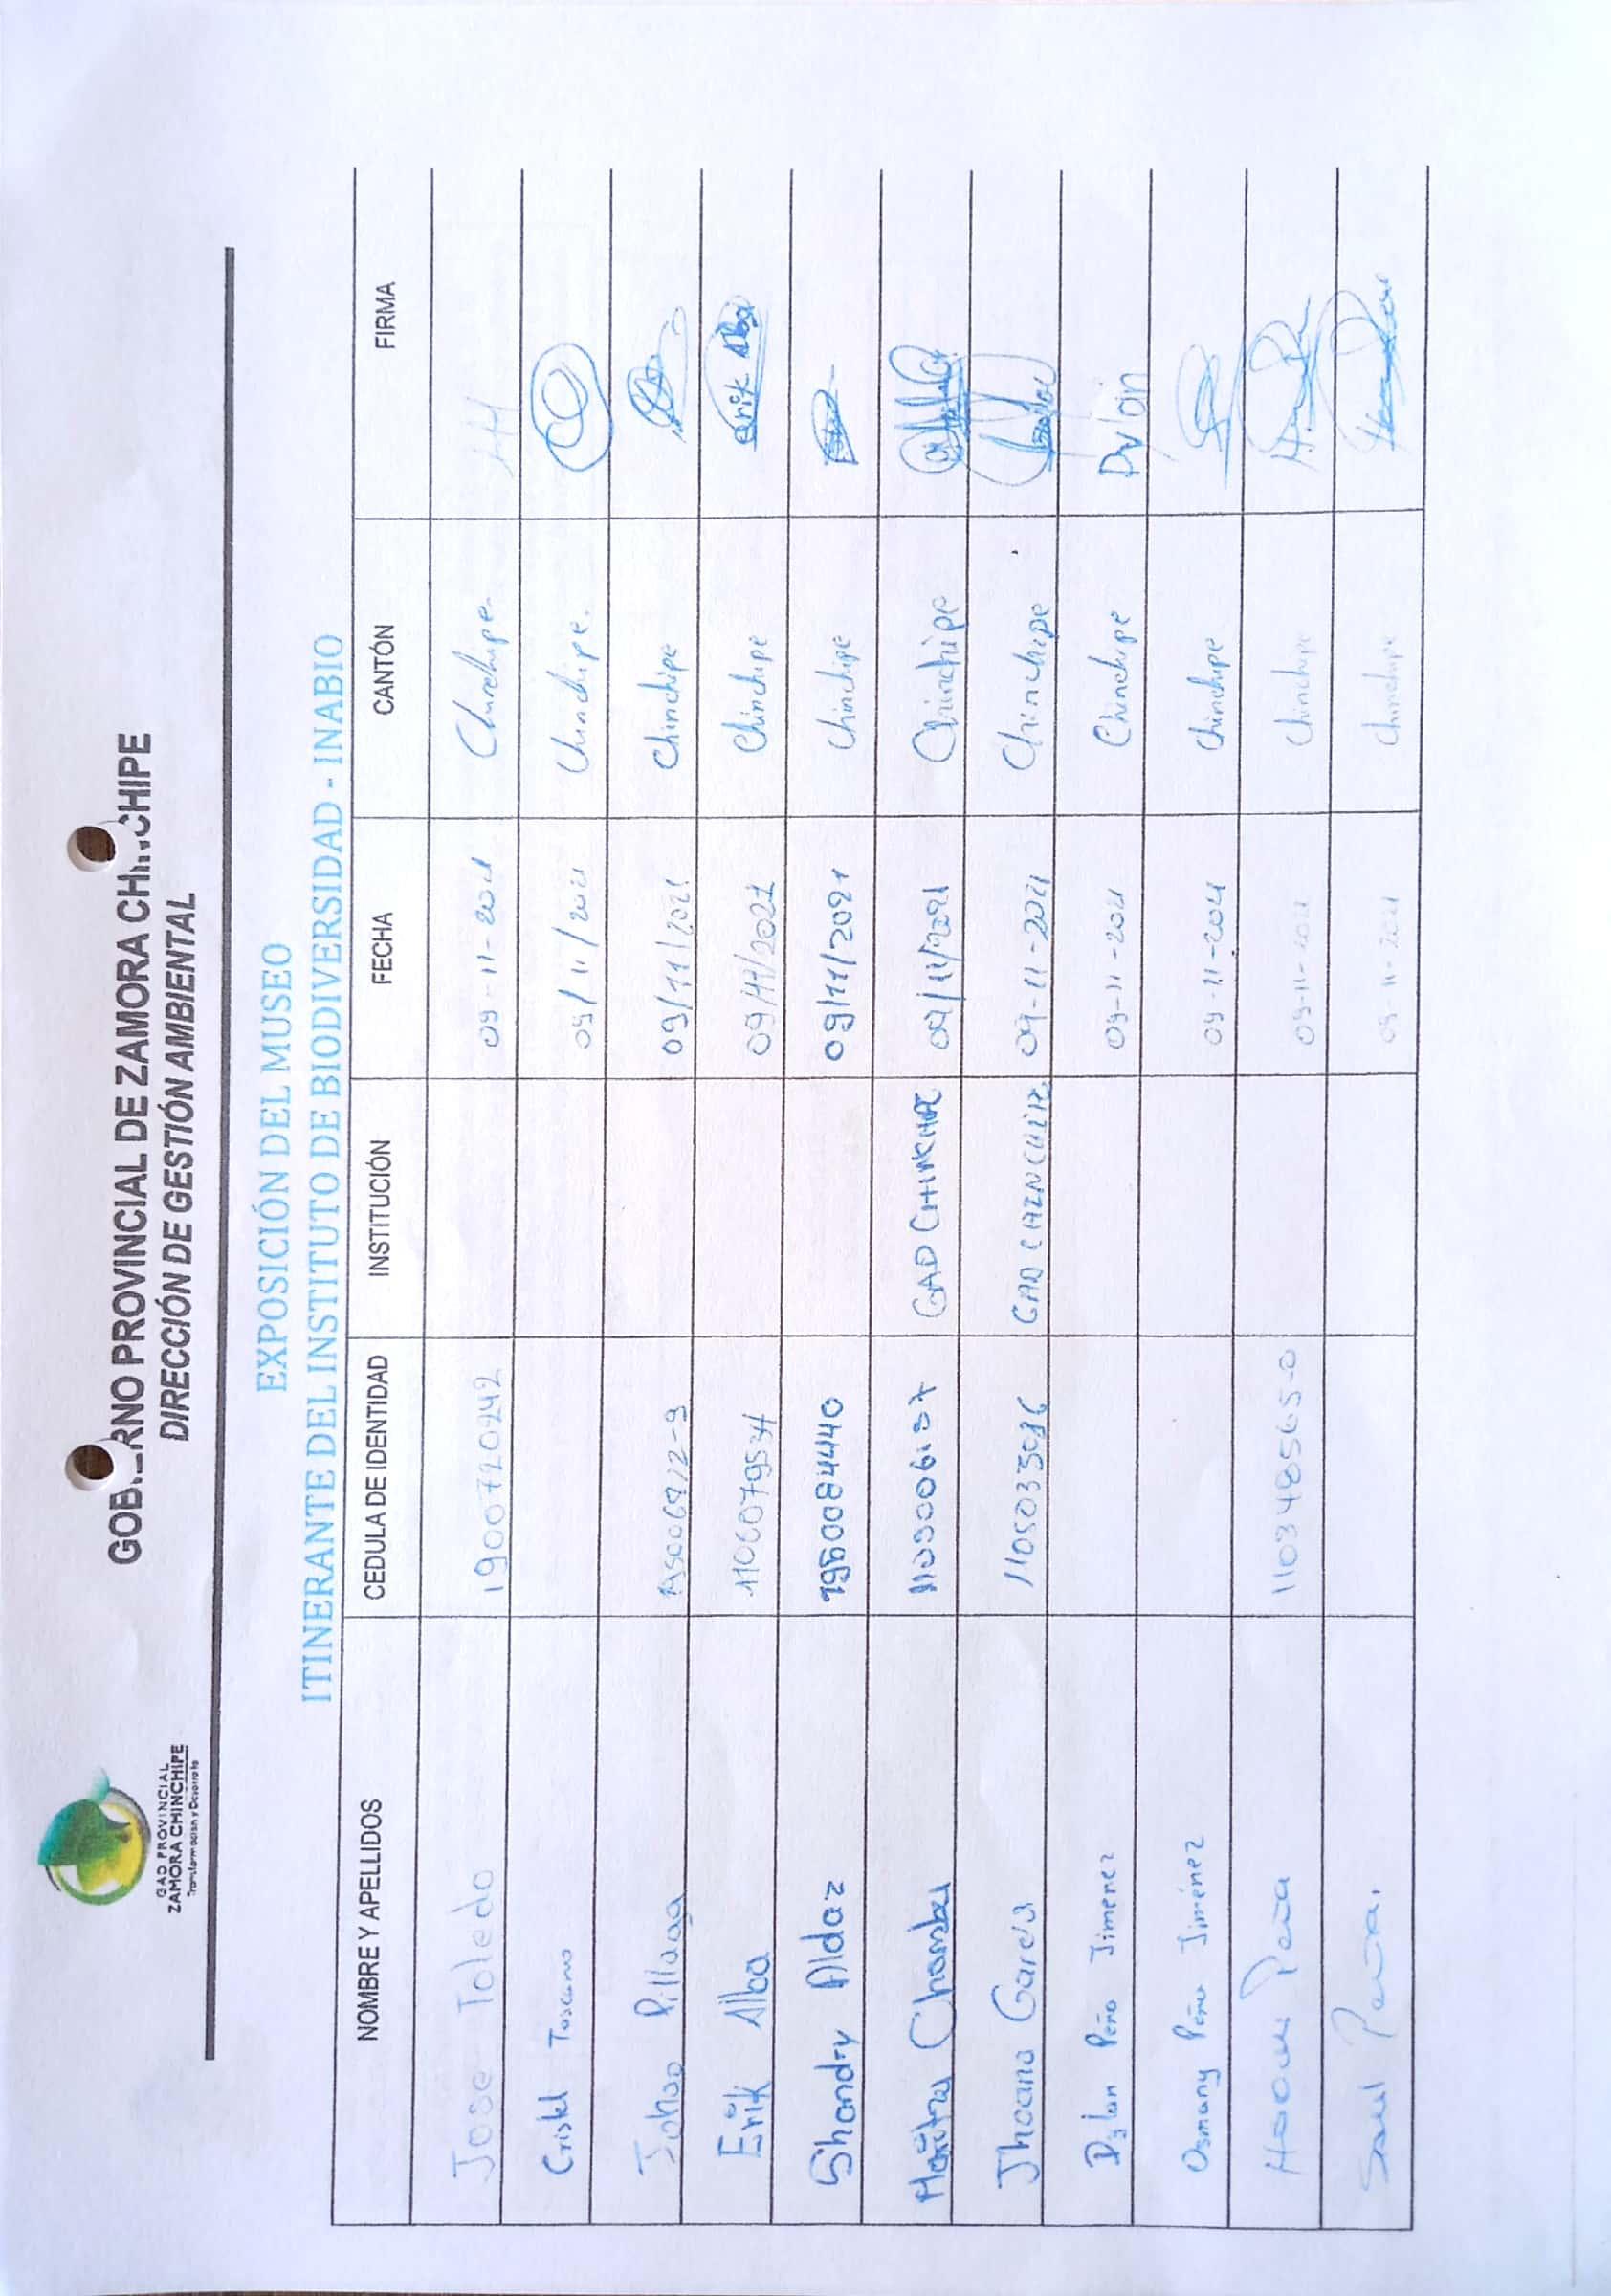 GAD PROVINCIAL
ZAMORA CHINCHIPE
Transformación y Desarrollo
GOBIERNO PROVINCIAL DE ZAMORA CHINCHIPE
DIRECCIÓN DE GESTIÓN AMBIENTAL
EXPOSICIÓN DEL MUSEO
ITINERANTE DEL INSTITUTO DE BIODIVERSIDAD - INABIO
NOMBRE Y APELLIDOS CEDULA DE IDENTIDAD INSTITUCIÓN FECHA CANTÓN FIRMA
Jose Toledo 1900720242 09-11-2021 Chinchipe.
Cristel Toscano 09/11/2021 Chinchipe.
Johao Pillaga 09/11/2021 Chinchipe
Erik Alba 09/11/2021 Chinchipe Erik Alba
Shandry Aldaz 1950084440 09/11/2021 Chinchipe
GAD CHINCHIPE 09/11/2021 Chinchipe
Jhoana Garcia 09-11-2021 Chinchipe
Dylan Peña Jimenez 09-11-2021 Chinchipe Dylan
Osmany Peña Jiménez 09-11-2021 Chinchipe
Peña 110348565-0 09-11-2021 Chinchipe
Saul Peña. 09-11-2021 Chinchipe